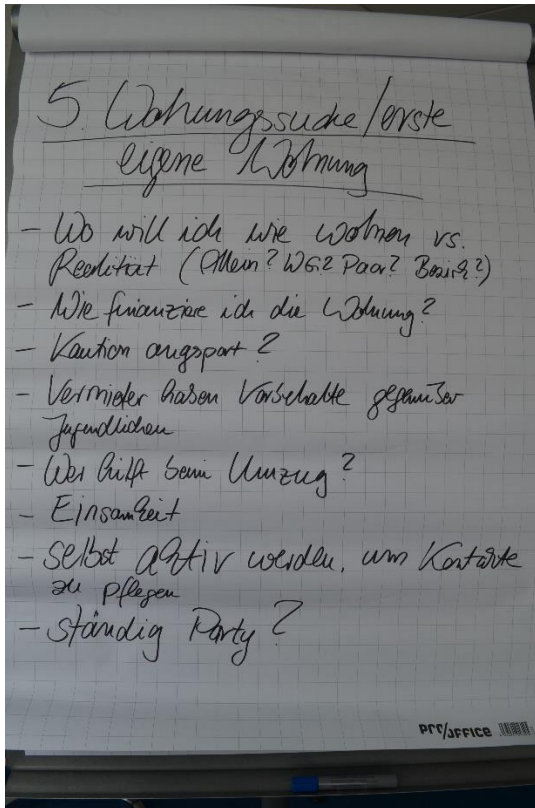 5. Wohnungssuche/erste
eigene Wohnung
- Wo will ich wie wohnen vs.
Realität (Allein? WG? Paar? Bezirk?)
- Wie finanziere ich die Wohnung?
- Kaution angspart?
- Vermieter haben Vorbehalte gegenüber
Jugendlichen
- Wer hilft beim Umzug?
- Einsamkeit
- selbst aktiv werden, um Kontakte
zu pflegen
- ständig Party?
pro/office